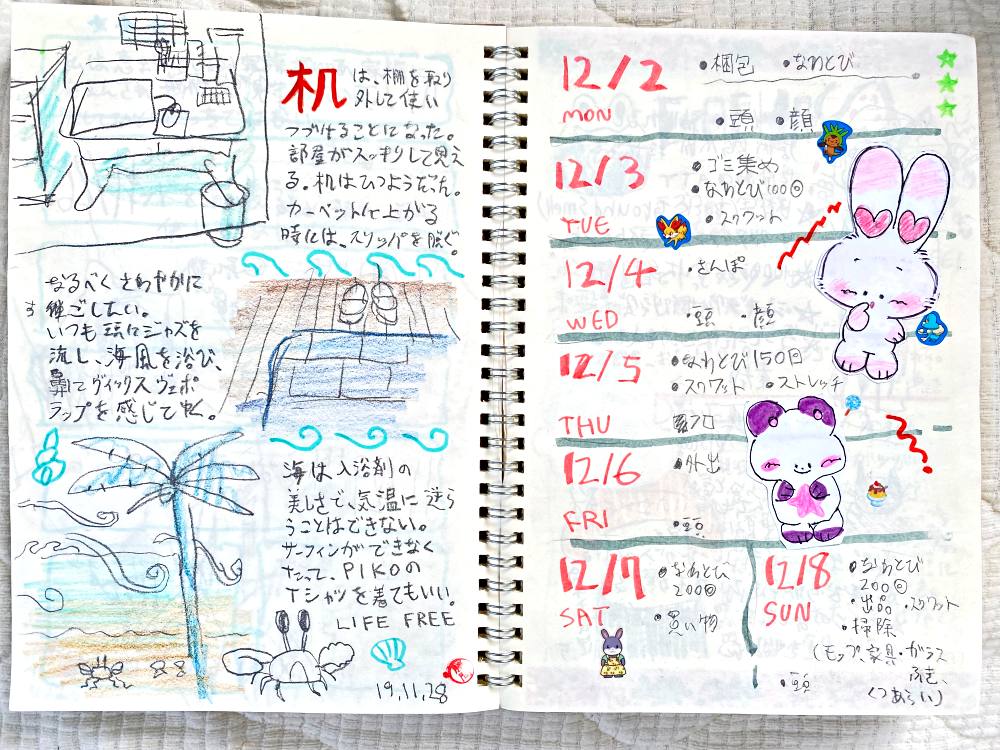 机は、棚を取り
外して使い
つづけることになった。
部屋がスッキリして見え
る。机はひつようだった。
カーペットに上がる
時には、スリッパを脱ぐ
なるべくさわやかに
すごしたい。
いつも頭にジャズを
流し、海風を浴び、
鼻でヴィックスヴェポ
ラップを感じて
海は入浴剤の
美しさで、気温に逆ら
うことはできない。
サーフィンができなく
たって、PIKOの
Tシャツを着てもいい。
LIFE FREE
19,11,28
12/2
MON
・梱包 ・なわとび
・頭 ・顔
12/3
TUE
・ゴミ集め
・なわとび100回
・スクワット
12/4
WED
・さんぽ
・頭 ・顔
12/5
THU
・なわとび150回
・スクワット ・ストレッチ
フロ
12/6
FRI
・外出
・頭
12/7
SAT
・なわとび
200回
・買い物
12/8
SUN
・なわとび
200回
・出品 ・スクワット
・掃除
(モップ、家具・ガラス
ふき、
くつあらい)
・頭